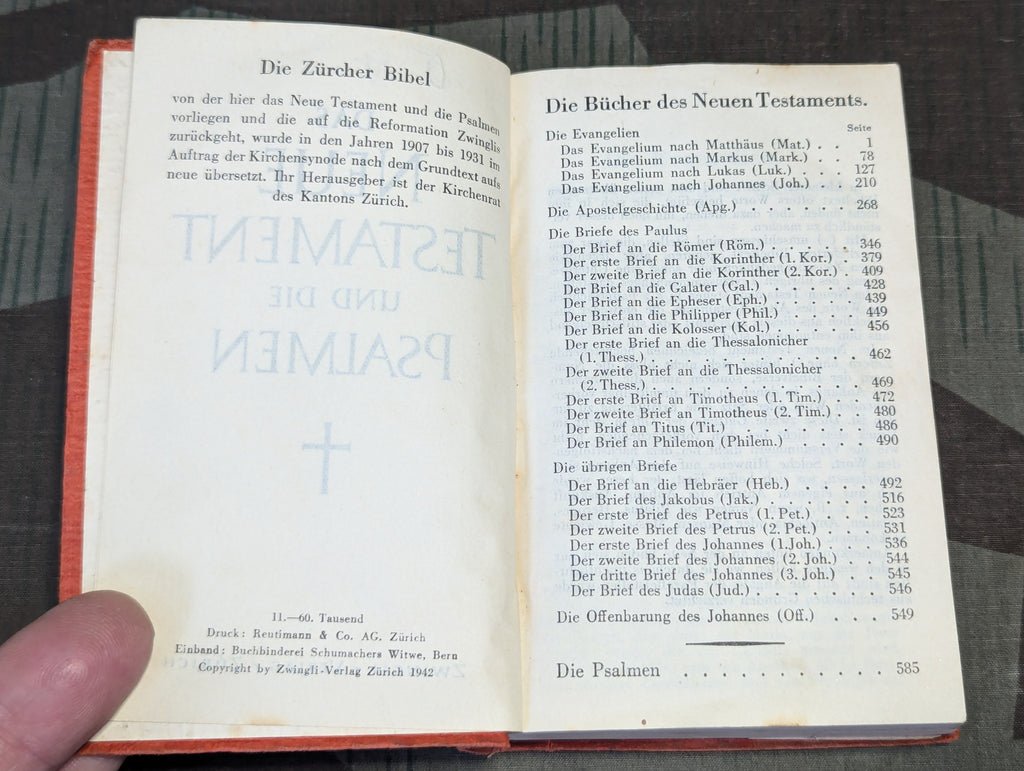 Die Zürcher Bibel
von der hier das Neue Testament und die Psalmen
vorliegen und die auf die Reformation Zwinglis
zurückgeht, wurde in den Jahren 1907 bis 1931 im
Auftrag der Kirchensynode nach dem Grundtext aufs
neue übersetzt. Ihr Herausgeber ist der Kirchenrat
des Kantons Zürich.
NEUE
TESTAMENT
UND DIE
PSALMEN
11.—60. Tausend
Druck: Reutimann & Co. AG. Zürich
Einband: Buchbinderei Schumachers Witwe, Bern
Copyright by Zwingli-Verlag Zürich 1942
Die Bücher des Neuen Testaments.
Seite
Die Evangelien
Das Evangelium nach Matthäus (Mat.) . . 1
Das Evangelium nach Markus (Mark.) . . 78
Das Evangelium nach Lukas (Luk.) . . . 127
Das Evangelium nach Johannes (Joh.) . 210
Die Apostelgeschichte (Apg.) . . . . . . 268
Die Briefe des Paulus
Der Brief an die Römer (Röm.) . . . . . 346
Der erste Brief an die Korinther (1. Kor.) . 379
Der zweite Brief an die Korinther (2. Kor.) . 409
Der Brief an die Galater (Gal.) . . . . . 428
Der Brief an die Epheser (Eph.) . . . . . 439
Der Brief an die Philipper (Phil.) . . . . 449
Der Brief an die Kolosser (Kol.) . . . . . 456
Der erste Brief an die Thessalonicher
(1. Thess.) . . . . . . . . . . . . 462
Der zweite Brief an die Thessalonicher
(2. Thess.) . . . . . . . . . . . . 469
Der erste Brief an Timotheus (1. Tim.) . . 472
Der zweite Brief an Timotheus (2. Tim.) . . 480
Der Brief an Titus (Tit.) . . . . . . . 486
Der Brief an Philemon (Philem.) . . . . . 490
Die übrigen Briefe
Der Brief an die Hebräer (Heb.) . . . . 492
Der Brief des Jakobus (Jak.) . . . . . . 516
Der erste Brief des Petrus (1. Pet.) . . . 523
Der zweite Brief des Petrus (2. Pet.) . . . 531
Der erste Brief des Johannes (1.Joh.) . . . 536
Der zweite Brief des Johannes (2. Joh.) . . 544
Der dritte Brief des Johannes (3. Joh.) . . 545
Der Brief des Judas (Jud.) . . . . . . . 546
Die Offenbarung des Johannes (Off.) . . . 549
Die Psalmen . . . . . . . . . . . 585